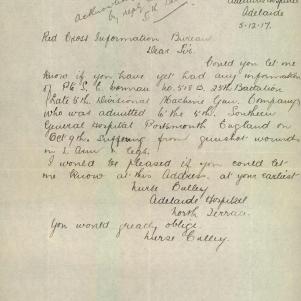 by reply
Adelaide Hospital
Adelaide
5.12.17.
Red Cross Information Bureau
Dear Sir.
Could you let me
know if you have yet had any information
of Pte S. C.
no. 515 B. 25th Battalion
(late 5th Divisional Machine Gun Company)
who was admitted to the 5th. Southern
General Hospital Portsmouth England on
Oct 9th. Suffering from gunshot wounds
in L. Arm & legs.
I would be pleased if you could let
me know at this Address. at your earliest
Nurse Culley
Adelaide Hospital
North Terrace.
You would greatly oblige.
Nurse Culley.